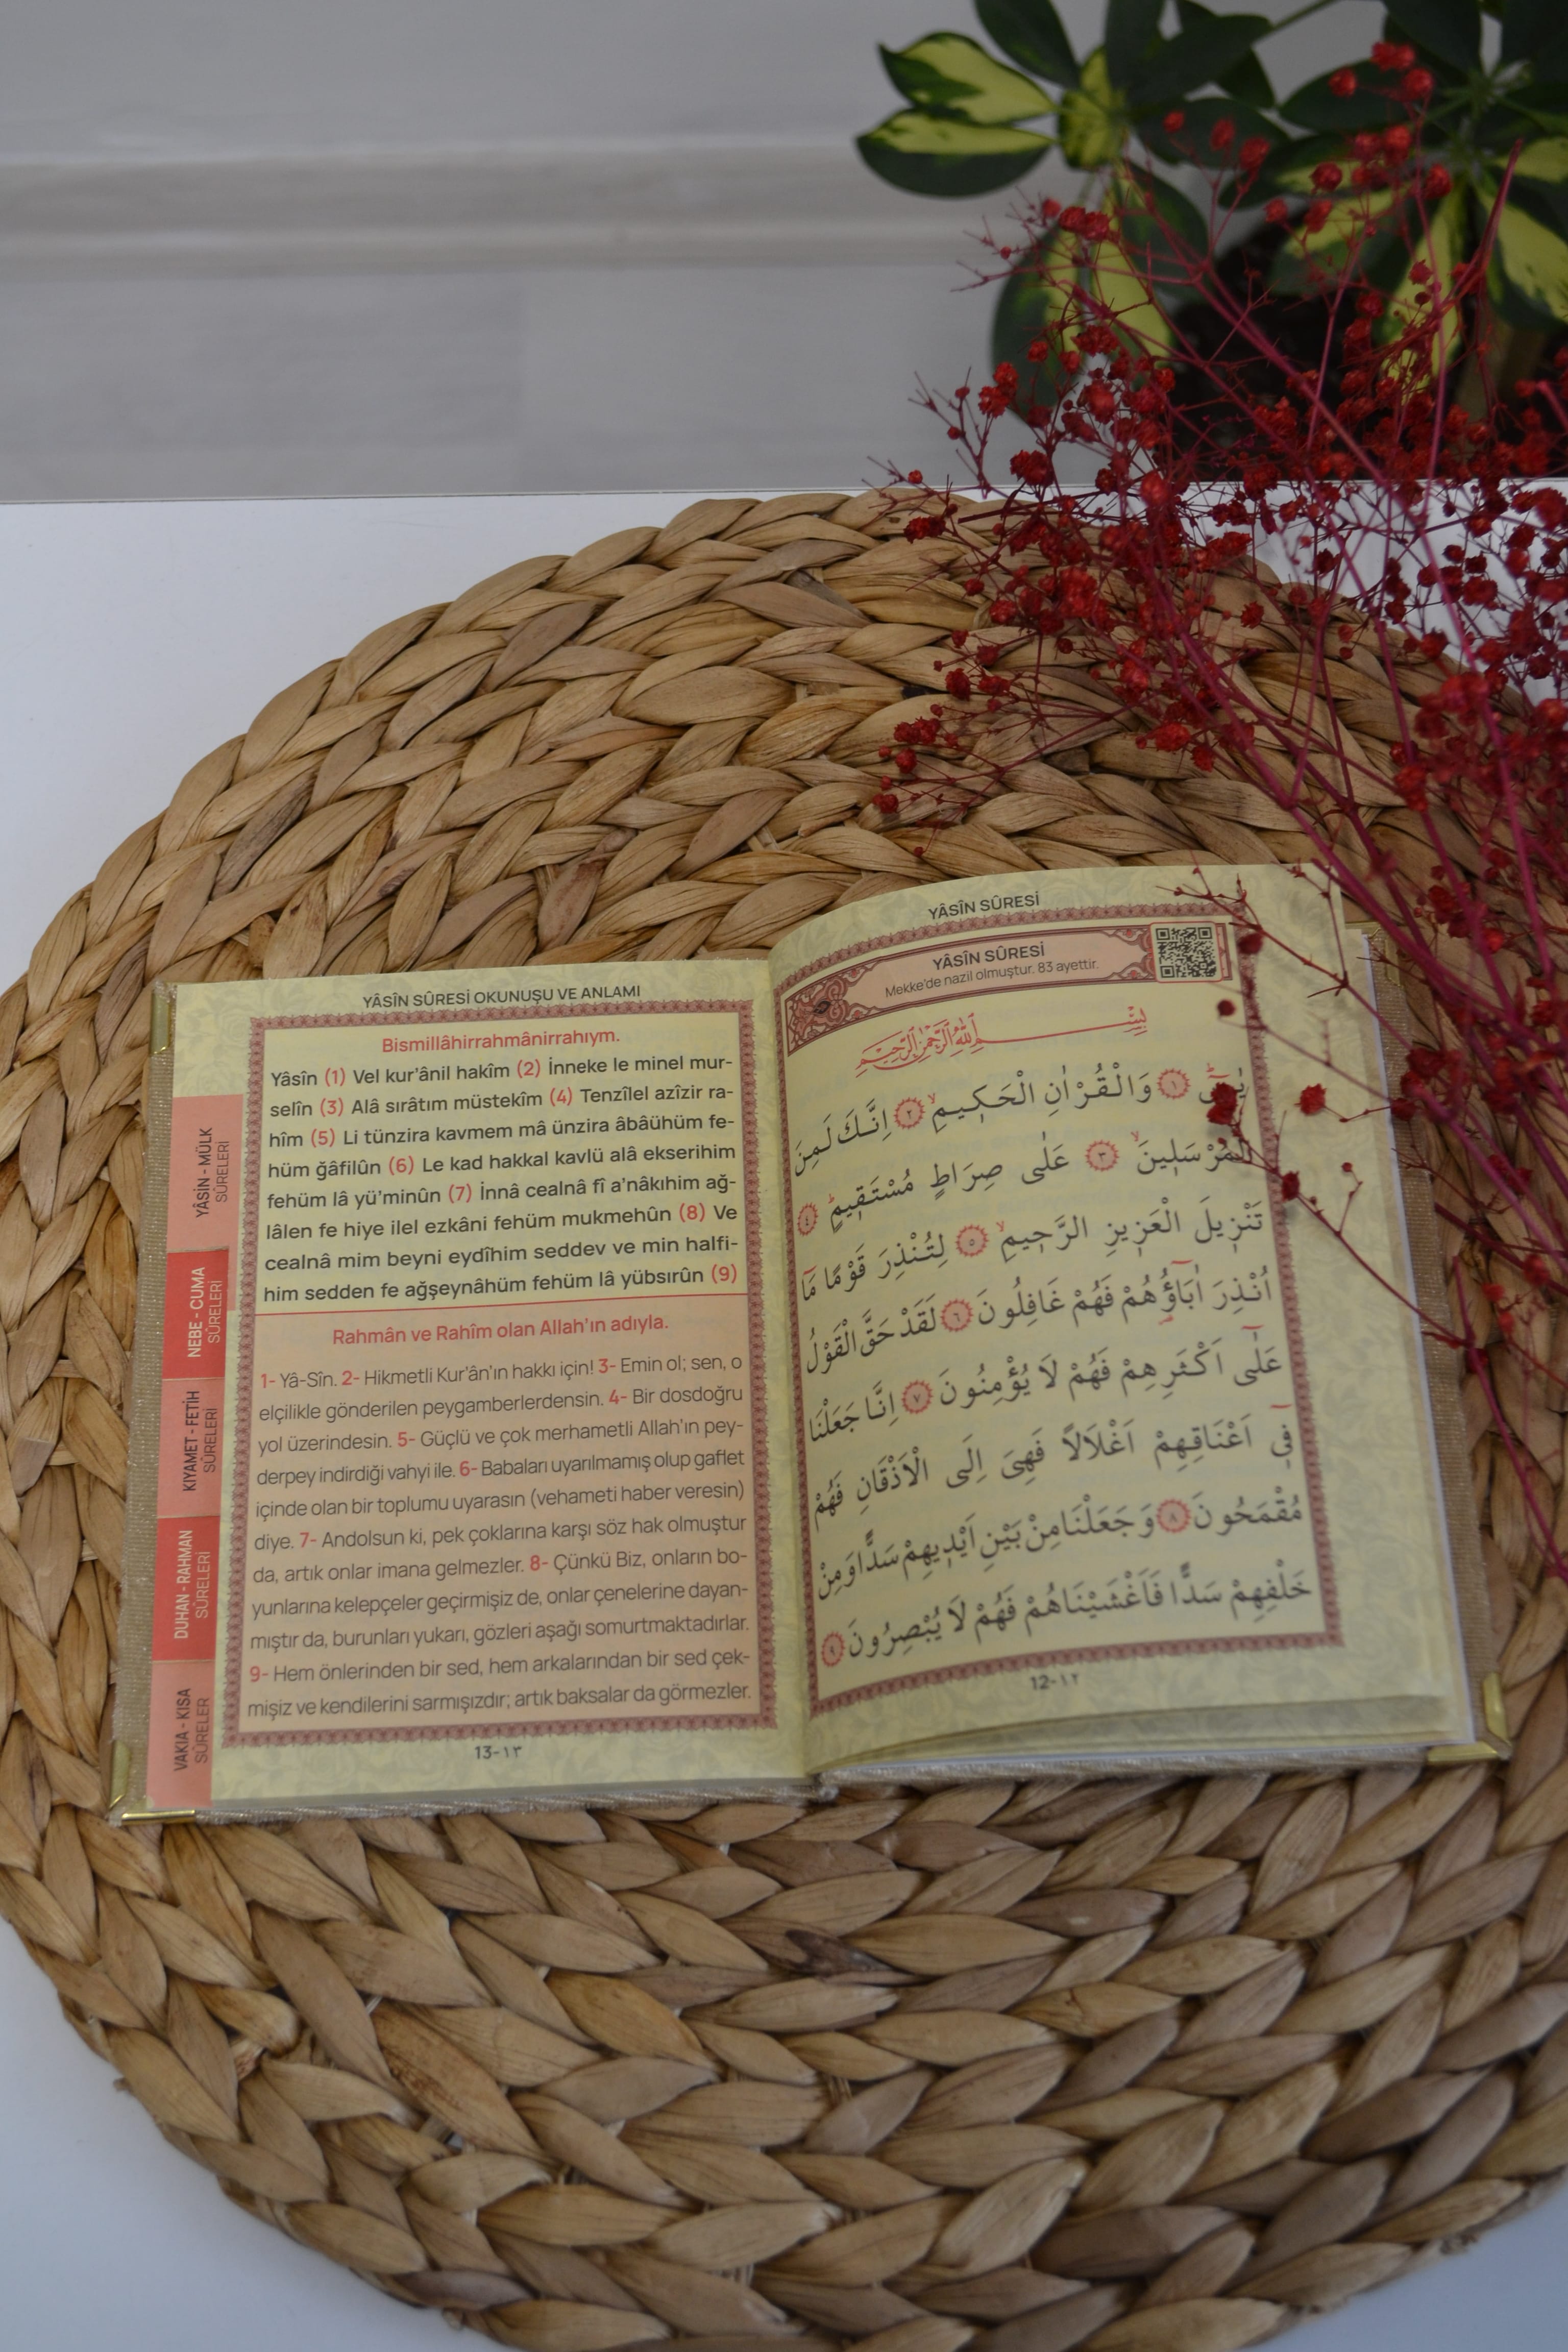 YÂSÎN SÛRESİ OKUNUŞU VE ANLAMI
Bismillâhirrahmânirrahıym.
Yâsîn (1) Vel kur'ânil hakîm (2) İnneke le minel mur-
selîn (3) Alâ sırâtım müstekîm (4) Tenzîlel azîzir ra-
hîm (5) Li tünzira kavmem mâ ünzira âbâühüm fe-
hüm ğâfilûn (6) Le kad hakkal kavlü alâ ekserihim
fehüm lâ yü'minûn (7) İnnâ cealnâ fî a'nâkıhim ağ-
lâlen fe hiye ilel ezkâni fehüm mukmehûn (8) Ve
cealnâ mim beyni eydîhim seddev ve min halfi-
him sedden fe ağşeynâhüm fehüm lâ yübsırûn (9)
Rahmân ve Rahîm olan Allah'ın adıyla.
1- Yâ-Sîn. 2- Hikmetli Kur'ân'ın hakkı için! 3- Emin ol; sen, o
elçilikle gönderilen peygamberlerdensin. 4- Bir dosdoğru
yol üzerindesin. 5- Güçlü ve çok merhametli Allah'ın pey-
derpey indirdiği vahyi ile. 6- Babaları uyarılmamış olup gaflet
içinde olan bir toplumu uyarasın (vehameti haber veresin)
diye. 7- Andolsun ki, pek çoklarına karşı söz hak olmuştur
da, artık onlar imana gelmezler. 8- Çünkü Biz, onların bo-
yunlarına kelepçeler geçirmişiz de, onlar çenelerine dayan-
mıştır da, burunları yukarı, gözleri aşağı somurtmaktadırlar.
9- Hem önlerinden bir sed, hem arkalarından bir sed çek-
mişiz ve kendilerini sarmışızdır; artık baksalar da görmezler.
13-١٣
YÂSİN - MÜLK
SÛRELERİ
NEBE - CUMA
SÛRELERİ
KIYAMET - FETİH
SÛRELERİ
DUHAN - RAHMAN
SÛRELERİ
VAKIA - KISA
SÛRELER
YÂSÎN SÛRESİ
YÂSÎN SÛRESİ
Mekke'de nazil olmuştur. 83 ayettir.
بِسْمِ اللّٰهِ الرَّحْمٰنِ الرَّحِيمِ
يٰسٓ ﴿١﴾ وَالْقُرْاٰنِ الْحَكِيمِۙ ﴿٢﴾ اِنَّكَ لَمِنَ
الْمُرْسَلِينَۙ ﴿٣﴾ عَلٰى صِرَاطٍ مُسْتَقِيمٍۜ ﴿٤﴾
تَنْزِيلَ الْعَزِيزِ الرَّحِيمِۙ ﴿٥﴾ لِتُنْذِرَ قَوْمًا مَٓا
اُنْذِرَ اٰبَٓاؤُ۬هُمْ فَهُمْ غَافِلُونَ ﴿٦﴾ لَقَدْ حَقَّ الْقَوْلُ
عَلٰٓى اَكْثَرِهِمْ فَهُمْ لَا يُؤْمِنُونَ ﴿٧﴾ اِنَّا جَعَلْنَا
ف۪ٓى اَعْنَاقِهِمْ اَغْلَالًا فَهِىَ اِلَى الْاَذْقَانِ فَهُمْ
مُقْمَحُونَ ﴿٨﴾ وَجَعَلْنَا مِنْ بَيْنِ اَيْدِيهِمْ سَدًّا وَمِنْ
خَلْفِهِمْ سَدًّا فَاَغْشَيْنَاهُمْ فَهُمْ لَا يُبْصِرُونَ ﴿٩﴾
12-١٢